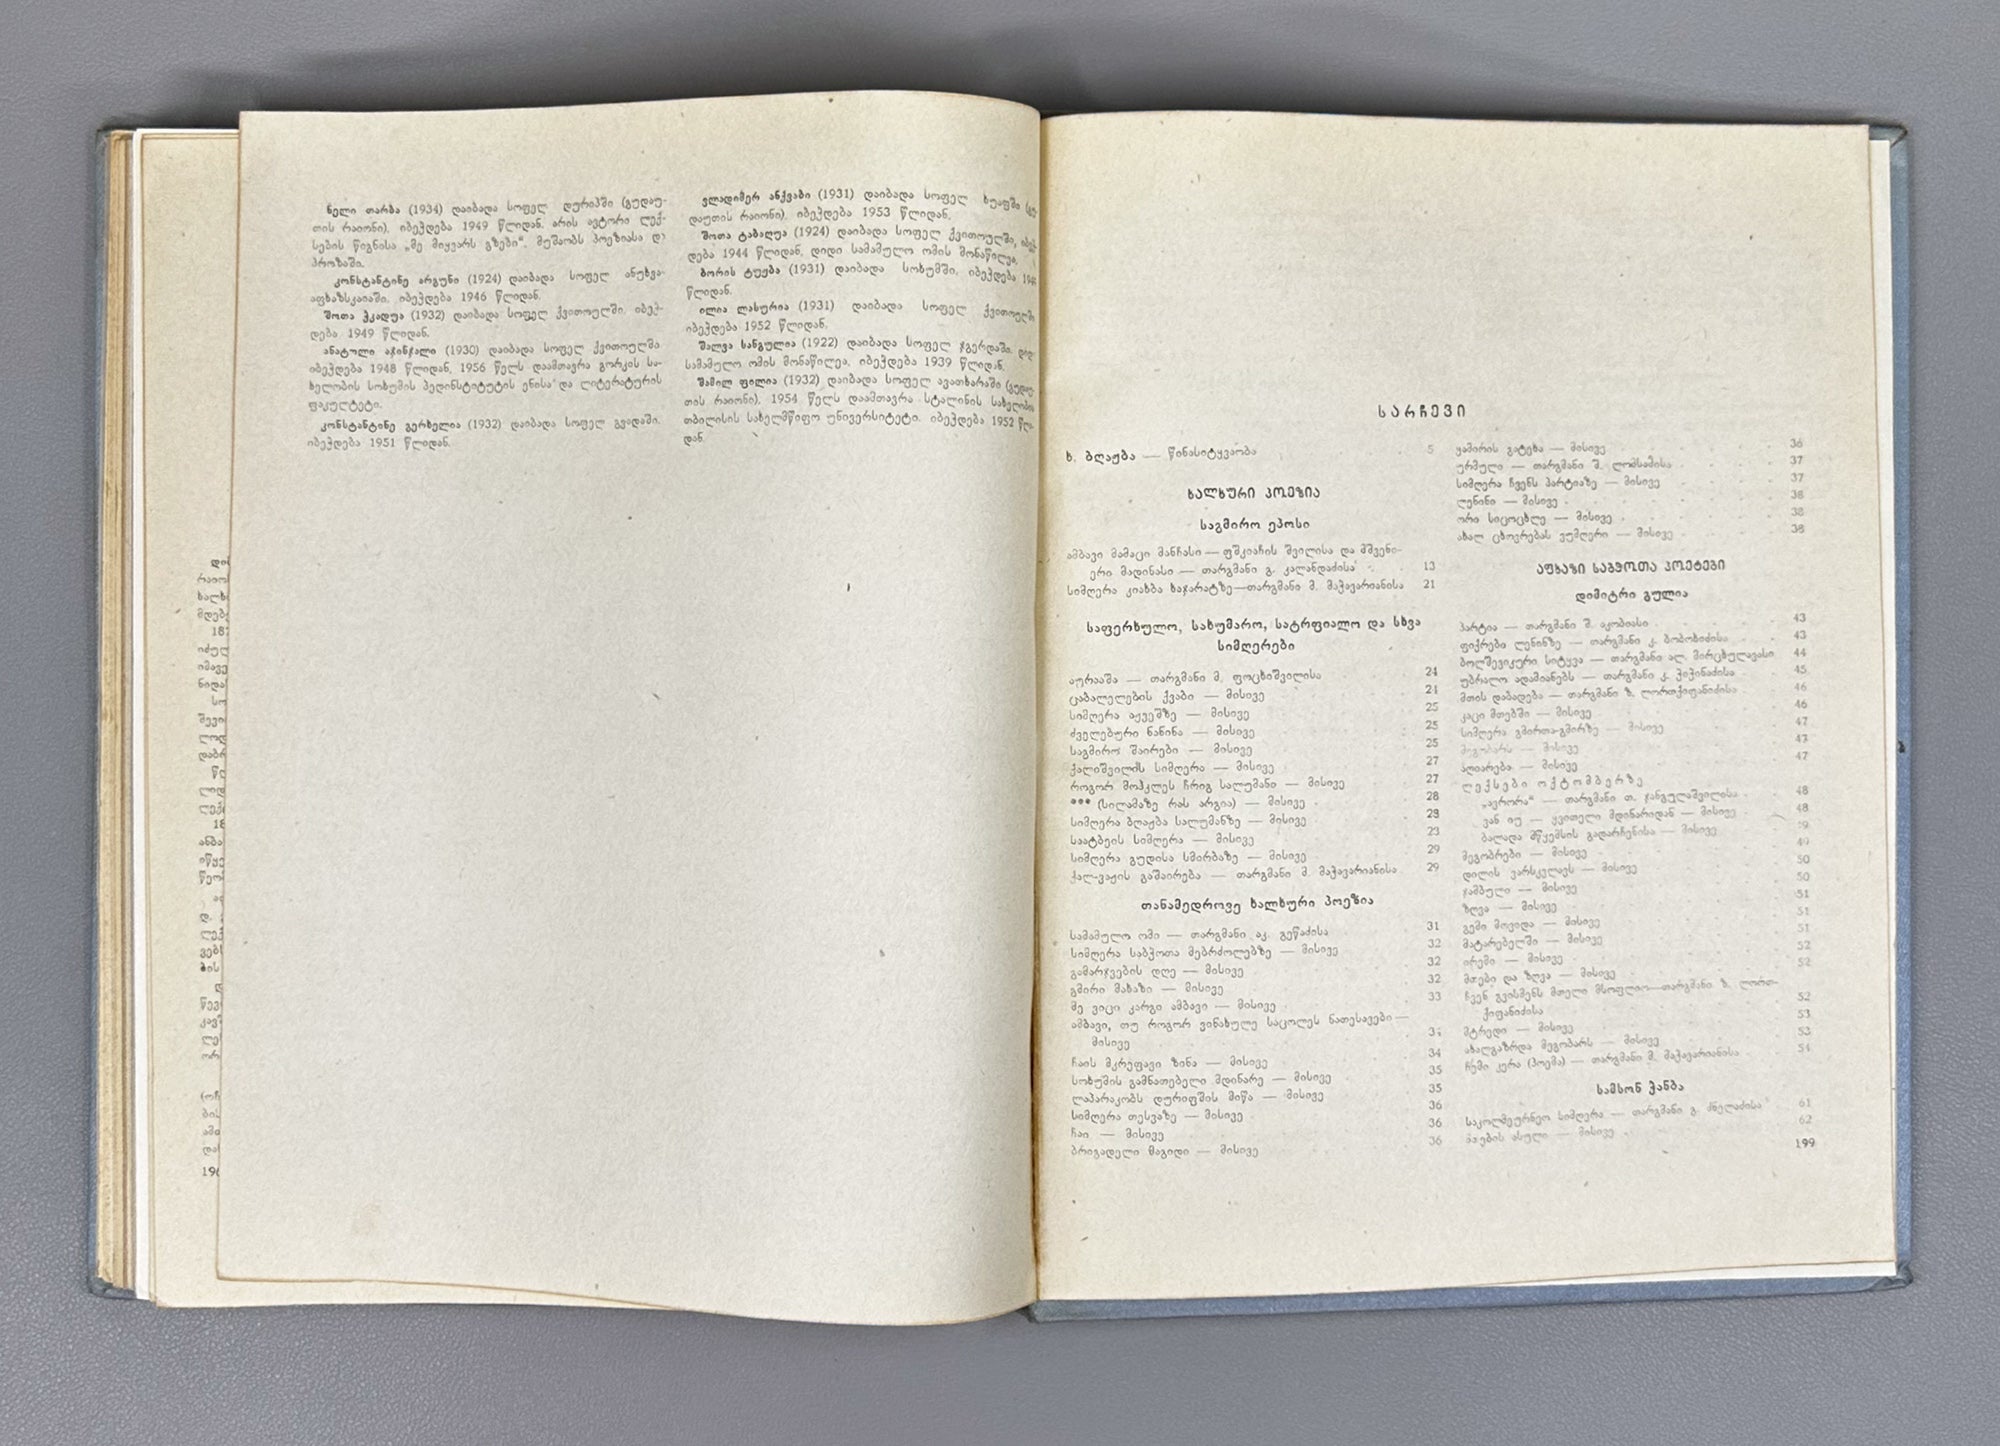 ნელი თარბა (1934) დაიბადა სოფელ დურიპში (გუდაუ-
თის რაიონი). იბეჭდება 1949 წლიდან. არის ავტორი ლექ-
სების წიგნისა „მე მიყვარს გზები“. მუშაობს პოეზიასა და
პროზაში.
კონსტანტინე არგუნი (1924) დაიბადა სოფელ ანუხვა-
აფხაზსკაიაში. იბეჭდება 1946 წლიდან.
შოთა ჭკადუა (1932) დაიბადა სოფელ ქვითოულში. იბეჭ-
დება 1949 წლიდან.
ანატოლი აჯინჯალი (1930) დაიბადა სოფელ ქვითოულში.
იბეჭდება 1948 წლიდან. 1956 წელს დაამთავრა გორკის სა-
ხელობის სოხუმის პედინსტიტუტის ენისა და ლიტერატურის
ფაკულტეტი.
კონსტანტინე გერხელია (1932) დაიბადა სოფელ გვადაში.
იბეჭდება 1951 წლიდან.
ვლადიმერ ანქვაბი (1931) დაიბადა სოფელ ხუაფში
დაუთის რაიონი). იბეჭდება 1953 წლიდან.
შოთა ტაბაღუა (1924) დაიბადა სოფელ ქვითოულში, იბეჭ-
დება 1944 წლიდან. დიდი სამამულო ომის მონაწილეა.
ბორის ტუჟბა (1931) დაიბადა სოხუმში. იბეჭდება
წლიდან.
ილია ლახურია (1931) დაიბადა სოფელ ქვითოულში
იბეჭდება 1952 წლიდან.
შალვა სანგულია (1922) დაიბადა სოფელ ჯგერდაში.
სამამულო ომის მონაწილეა. იბეჭდება 1939 წლიდან.
შამილ ფილია (1932) დაიბადა სოფელ ავათხარაში (გუდაუ-
თის რაიონი). 1954 წელს დაამთავრა სტალინის სახელობის
თბილისის სახელმწიფო უნივერსიტეტი. იბეჭდება 1952 წლი-
დან.
სარჩევი
ხ. ბღაჟბა — წინასიტყვაობა 5
ხალხური პოეზია
საგმირო ეპოსი
ამბავი მამაცი მანჩასი — ფშკიაჩის შვილისა და მშვენი-
ერი მადინასი — თარგმანი გ. კალანდაძისა 13
სიმღერა კიახბა ხაჯარატზე—თარგმანი მ. მაჭავარიანისა 21
საფერხულო, სახუმარო, სატრფიალო და სხვა
სიმღერები
აურააშა — თარგმანი მ. ფოცხიშვილისა 24
ცაბალელების ქვაბი — მისივე 24
სიმღერა აჟვეშზე — მისივე 25
ძველებური ნანინა — მისივე 25
საგმირო შაირები — მისივე 25
ქალიშვილის სიმღერა — მისივე 27
როგორ მოჰკლეს ჩრიგ სალუმანი — მისივე 27
*** (სილამაზე რას არგია) — მისივე 28
სიმღერა ბღაჟბა სალუმანზე — მისივე 28
საატბეის სიმღერა — მისივე 28
სიმღერა გუდისა სმირბაზე — მისივე 29
ქალ-ვაჟის გაშაირება — თარგმანი მ. მაჭავარიანისა 29
თანამედროვე ხალხური პოეზია
სამამულო ომი — თარგმანი აკ. გეწაძისა 31
სიმღერა საბჭოთა მებრძოლებზე — მისივე 32
გამარჯვების დღე — მისივე 32
გმირი მახაზი — მისივე 32
მე ვიცი კარგი ამბავი — მისივე 33
ამბავი, თუ როგორ ვინახულე საცოლეს ნათესავები—
მისივე
ჩაის მკრეფავი ზინა — მისივე 34
სოხუმის გამნათებელი მდინარე — მისივე 35
ლაპარაკობს დურიფშის მიწა — მისივე 35
სიმღერა თესვაზე — მისივე 36
ჩაი — მისივე 36
ბრიგადელი მაგიდი — მისივე 36
ყამირის გატეხა — მისივე 36
ურმული — თარგმანი შ. ლომსაძისა 37
სიმღერა ჩვენს პარტიაზე — მისივე 37
ლენინი — მისივე 38
ორი სიცოცხლე — მისივე 38
ახალ ცხოვრებას ვუმღერი — მისივე 38
აფხაზი საბჭოთა პოეტები
დიმიტრი გულია
პარტია — თარგმანი შ. აკობიასი 43
ფიქრები ლენინზე — თარგმანი კ. ბობოხიძისა 43
ბოლშევიკური სიტყვა — თარგმანი ალ. მირცხულავასი 44
უბრალო ადამიანებს — თარგმანი კ. ჭიჭინაძისა 45
მთის დაბადება — თარგმანი ზ. ლორთქიფანიძისა 46
კაცი მთებში — მისივე 46
სიმღერა გმირთა-გმირზე — მისივე 47
მეგობარს — მისივე 47
აღიარება — მისივე 47
ლექსები ოქტომბერზე
„ავრორა“ — თარგმანი თ. ჯანგულაშვილისა 48
ვან იუ — ყვითელი მდინარიდან — მისივე 48
ბალადა მწყემსის გადარჩენისა — მისივე 49
მეგობრები — მისივე 49
დილის ვარსკვლავს — მისივე 50
ჯამბული — მისივე 50
ზღვა — მისივე 51
გემი მოვიდა — მისივე 51
მატარებელში — მისივე 51
ირემი — მისივე 52
მთები და ზღვა — მისივე 52
ჩვენ გვისმენს მთელი მსოფლიო—თარგმანი ზ. ლორთ-
ქიფანიძისა 52
მტრედი — მისივე 53
ახალგაზრდა მეგობარს — მისივე 53
ჩემი კერა (პოემა) — თარგმანი მ. მაჭავარიანისა 54
სამსონ ჭანბა
საკოლმეურნეო სიმღერა — თარგმანი გ. ძნელაძისა 61
მთების ასული — მისივე 62
199